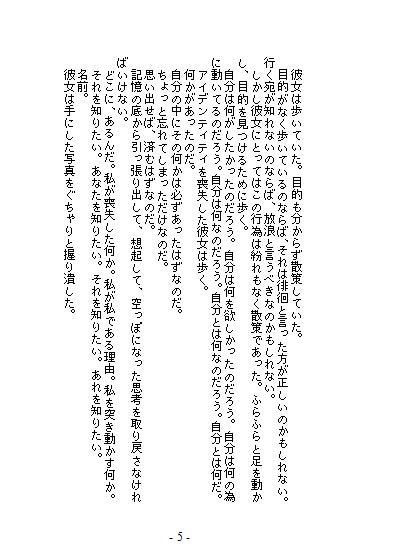 彼女は歩いていた。目的も分からず散策していた。
　目的がなく歩いているのならば、それは徘徊と言った方が正しいのかもしれない。
行く宛が知れないのならば、放浪と言うべきなのかもしれない。
　しかし彼女にとってはこの行為は紛れもなく散策であった。ふらふらと足を動か
し、目的を見つけるために歩く。
　自分は何がしたかったのだろう。自分は何を欲しかったのだろう。自分は何の為
に動いてるのだろう。自分は何なのだろう。自分とは何なのだろう。自分とは何だ。
　アイデンティティを喪失した彼女は歩く。
　何かがあったのだ。
　自分の中にその何かは必ずあったはずなのだ。
　ちょっと忘れてしまっただけなのだ。
　思い出せば、済むはずなのだ。
　記憶の底から引っ張り出して、想起して、空っぽになった思考を取り戻さなけれ
ばいけない。
　どこに、あるんだ。私が喪失した何か。私が私である理由。私を突き動かす何か。
　それを知りたい。あなたを知りたい。それを知りたい。あれを知りたい。
　名前。
　彼女は手にした写真をぐちゃりと握り潰した。
- 5 -